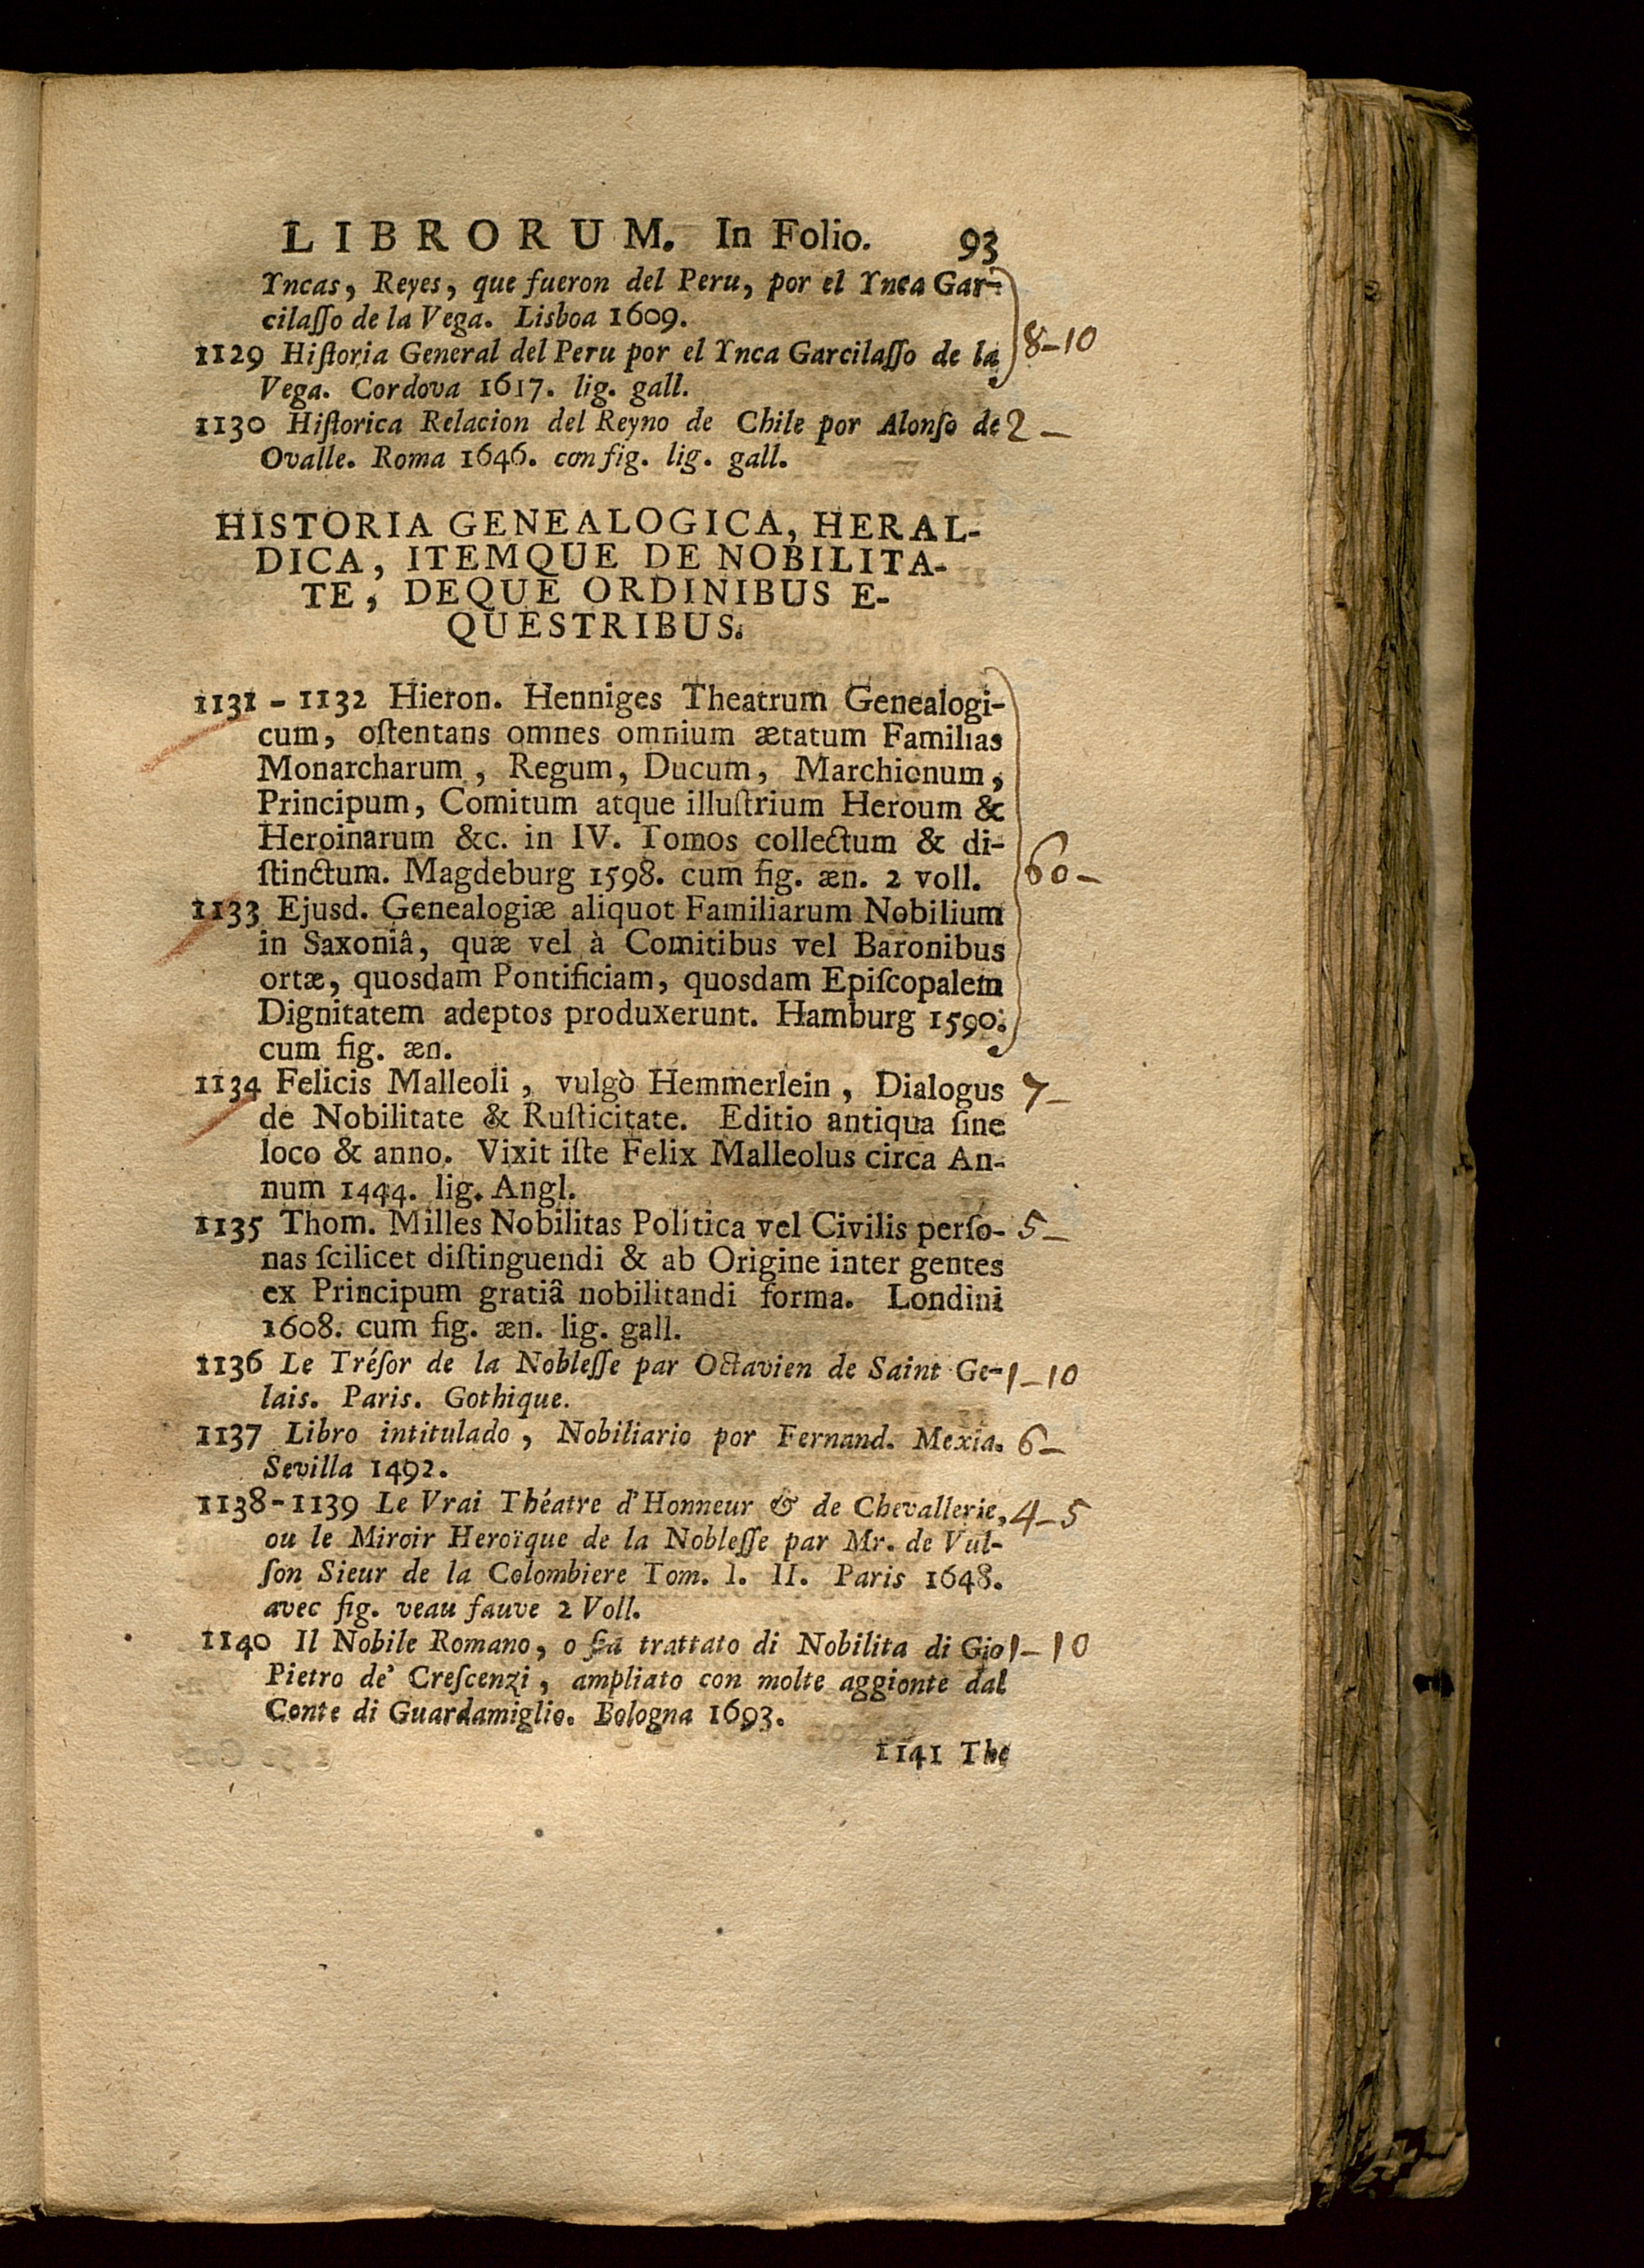 LIBRORUM. In Folio. 93
Yncas, Reyes, que fueron del Peru, por el Ynca Gar-
cilaſſo de la Vega. Lisboa 1609.
1129 Hiſtoria General del Peru por el Ynca Garcilaſſo de la 8-10
Vega. Cordova 1617. lig. gall.
1130 Hiſtorica Relacion del Reyno de Chile por Alonſo de 2 -
Ovalle. Roma 1646. con fig. lig. gall.
HISTORIA GENEALOGICA, HERAL-
DICA, ITEMQUE DE NOBILITA-
TE, DEQUE ORDINIBUS E-
QUESTRIBUS.
1131 - 1132 Hieron. Henniges Theatrum Genealogi-
cum, oſtentans omnes omnium ætatum Familias
Monarcharum, Regum, Ducum, Marchionum,
Principum, Comitum atque illuſtrium Heroum &
Heroinarum &c. in IV. Tomos collectum & di-
ſtinctum. Magdeburg 1598. cum fig. æn. 2 voll. 60 -
1133 Ejusd. Genealogiæ aliquot Familiarum Nobilium
in Saxoniâ, quæ vel à Comitibus vel Baronibus
ortæ, quosdam Pontificiam, quosdam Epiſcopalem
Dignitatem adeptos produxerunt. Hamburg 1590.
cum fig. æn.
1134 Felicis Malleoli, vulgò Hemmerlein, Dialogus 7 -
de Nobilitate & Ruſticitate. Editio antiqua ſine
loco & anno. Vixit iſte Felix Malleolus circa An-
num 1444. lig. Angl.
1135 Thom. Milles Nobilitas Politica vel Civilis perſo- 5 -
nas ſcilicet diſtinguendi & ab Origine inter gentes
ex Principum gratiâ nobilitandi forma. Londini
1608. cum fig. æn. lig. gall.
1136 Le Tréſor de la Nobleſſe par Octavien de Saint Ge- 1-10
lais. Paris. Gothique.
1137 Libro intitulado, Nobiliario por Fernand. Mexia. 6 -
Sevilla 1492.
1138-1139 Le Vrai Théatre d'Honneur & de Chevallerie, 4-5
ou le Miroir Heroïque de la Nobleſſe par Mr. de Vul-
ſon Sieur de la Colombiere Tom. I. II. Paris 1648.
avec fig. veau fauve 2 Voll.
1140 Il Nobile Romano, o ſia trattato di Nobilita di Gio 1-10
Pietro de' Creſcenzi, ampliato con molte aggionte dal
Conte di Guardamiglio. Bologna 1693.
1141 The